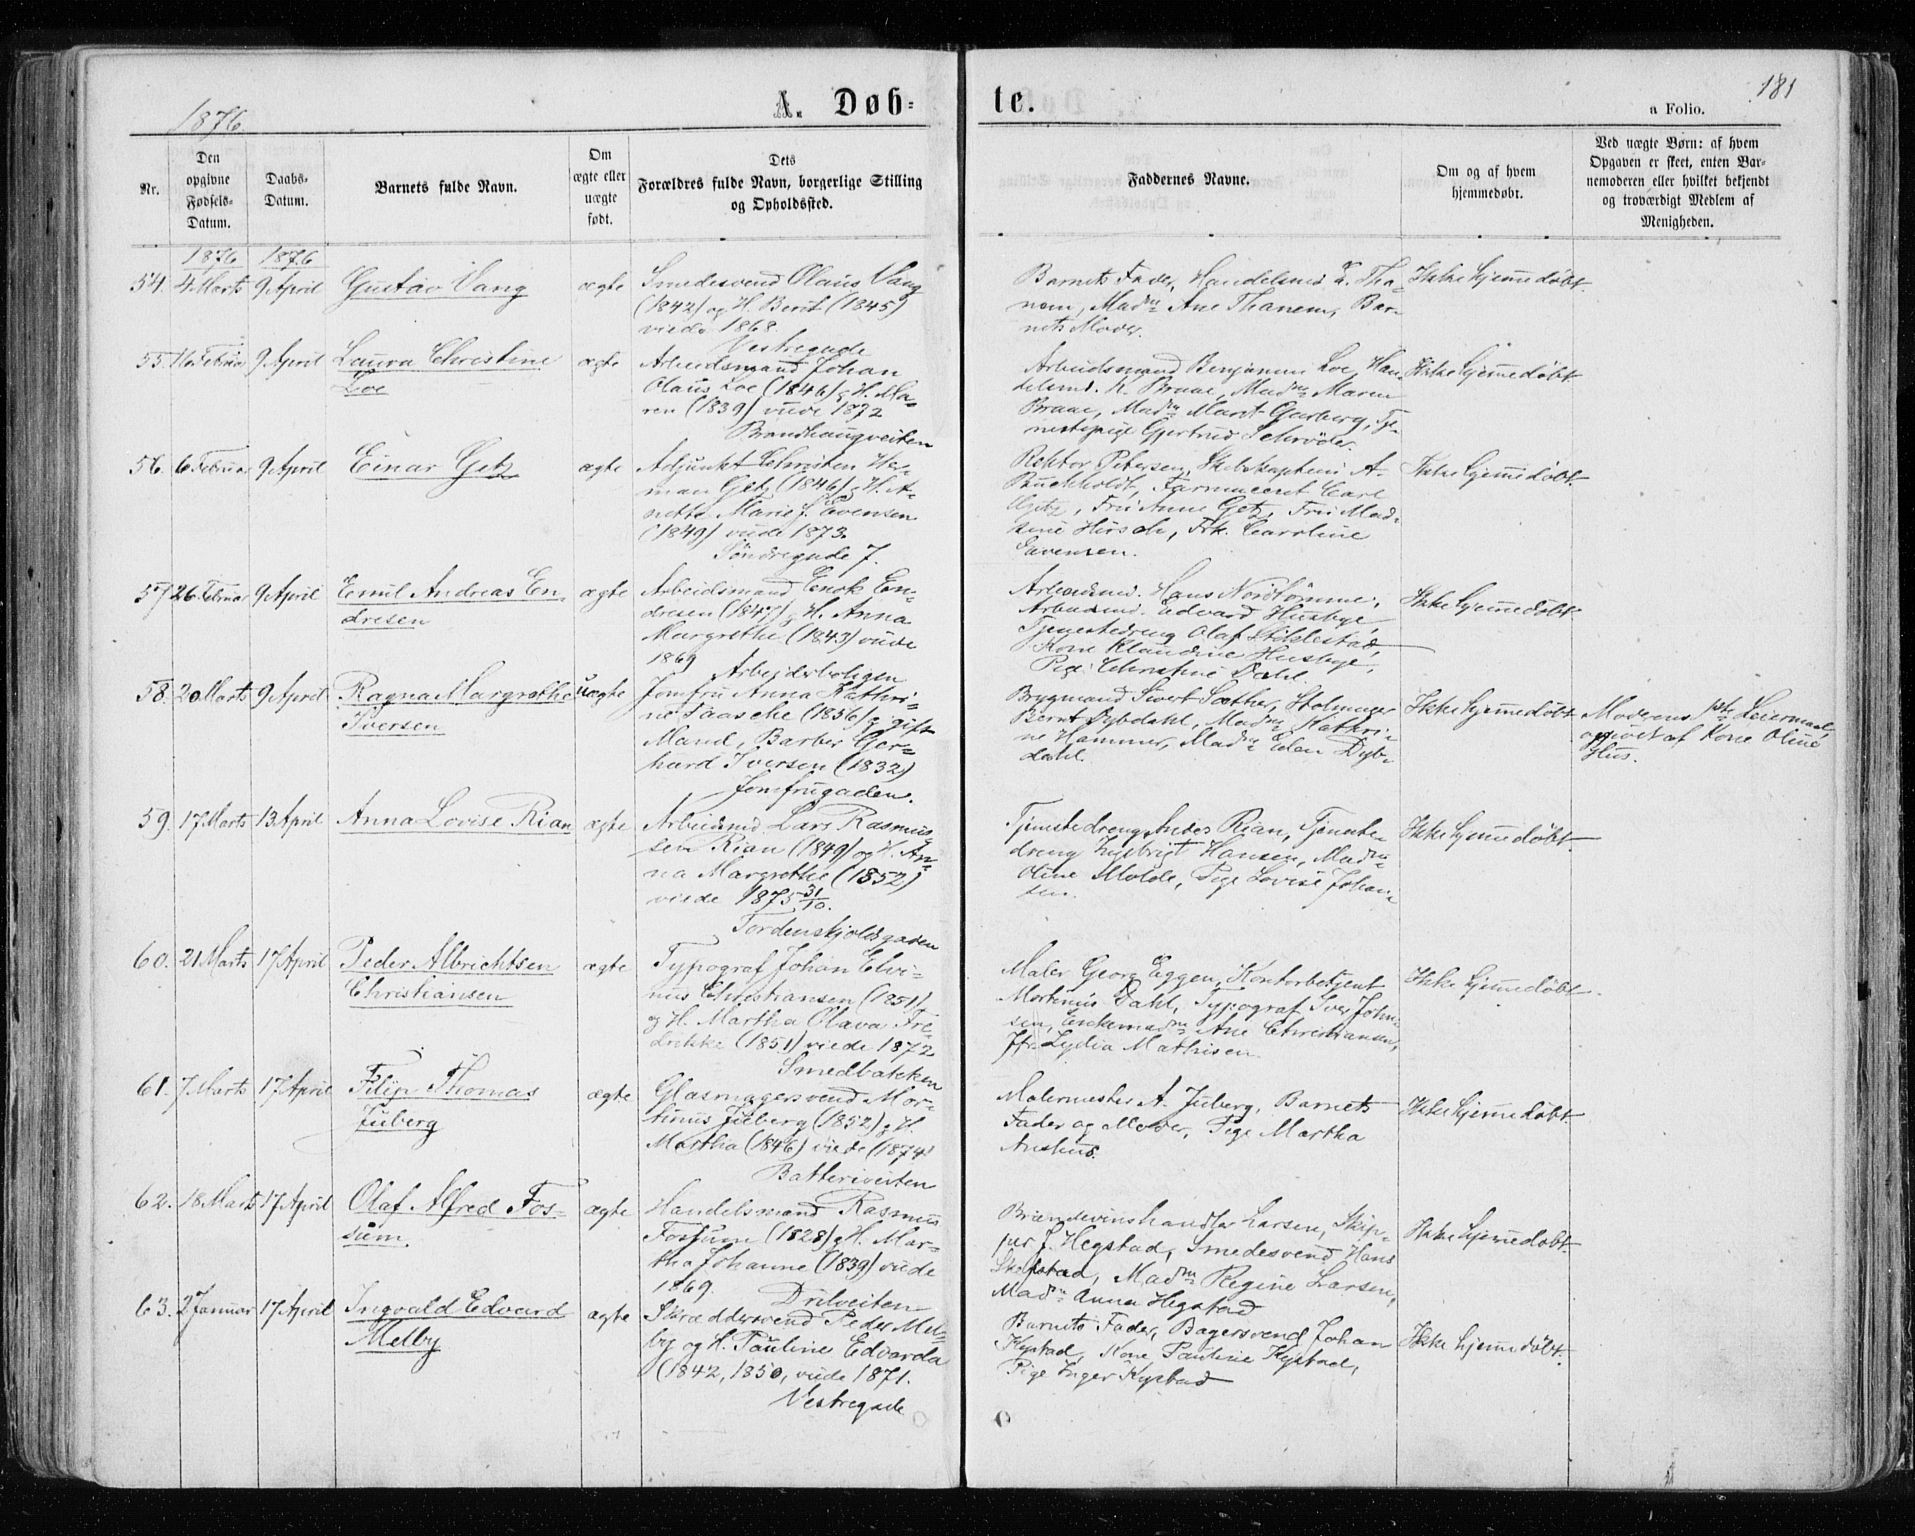 1876
A. Døb-
te.
181
a Folio.
Nr.
Den
opgivne
Fødsels-
Datum.
Daabs-
Datum.
Barnets fulde Navn.
Om
ægte eller
uægte
født.
Dets
Forældres fulde Navn, borgerlige Stilling
og Opholdssted.
Faddernes Navne.
Om og af hvem
hjemmedøbt.
Ved uægte Børn: af hvem
Opgaven er skeet, enten Bar-
nemoderen eller hvilket bekjendt
og troværdigt Medlem af
Menigheden.
1876 1876
54. 4 Marts 9 April Gustav Vang ægte
Smedesvend Olaus Vang
(1842) og H. Berit (1845)
viede 1868.
Vestregade
Barnets Fader, Handelsmd Tha-
nem, Madm Ane Thanem, Bar-
nets Moder.
Ikke hjemmedøbt.
55. 16 Februar 9 April Laura Christine
Loe
ægte
Arbeidsmand Johan
Olaus Loe (1846) g H. Ma-
ren (1839) viede 1872
Brandhaugveiten
Arbeidsmand Benjamin Loe, Han-
delsmd. K. Braae, Madm Maren
Braae, Madm Marit Garberg, Tje-
nestepige Gjertrud Schrøder.
Ikke hjemmedøbt.
56. 6 Februar 9 April Einar Getz ægte
Adjunkt Christen Her-
man Getz (1846) g H. A-
nette Marie J. Evensen
(1849) viede 1873.
Søndregade 7.
Rektor Petersen, Skibskaptein A.
Buckholdt, Farmaceut Carl
Getz, Fru Anne Getz, Fru Mad-
sine Hirsch, Frk. Caroline
Evensen.
Ikke hjemmedøbt.
57. 26 Februar 9 April Emil Andreas En-
dresen
ægte
Arbeidsmand Enok En-
dresen (1847) g H. Anna
Margrethe (1843) viede
1869
Arbejderboligen
Arbeidsmd. Hans Nordtømme,
Arbeidsmd. Edvard Husbye,
Tjenestedreng Olaf Stiklestad,
Kone Klaudine Husbye,
Pige Christine Dahl.
Ikke hjemmedøbt.
58. 20 Marts 9 April Ragna Margrethe
Iversen
uægte
Jomfru Anna Kathri-
ne Paasche (1856) g gift
Mand, Barber Ger-
hard Iversen (1832)
Jomfrugaden.
Brygmand Sivert Sæther,
Bernt Dybdahl, Madm Kathri-
ne Hammer, Madm Elen Dyb-
dahl.
Ikke hjemmedøbt
Moderens 1ste Leiermaal,
opgivet af Kone Oline
Hus.
59. 17 Marts 13 April Anna Lovise Rian ægte
Arbeidsmd Lars Rasmus-
sen Rian (1849) og H. An-
na Margrethe (1852)
viede 1875 31/10.
Tordenskjoldsgaden
Tjenestedreng Anders Rian, Tjeneste-
dreng Ingebrigt Hansen, Madm
Oline Molde, Pige Lovise Johan-
sen.
Ikke hjemmedøbt.
60. 21 Marts 17 April Peder Albrichtsen
Christiansen
ægte
Typograf Johan Elvi-
nus Christiansen (1851)
og H. Martha Olava Fre-
drikke (1851) viede 1872
Smedbakken
Maler Georg Eggen, Kontorbetjent
Martinus Dahl, Typograf Iver John-
sen, Enkemadm Ane Christiansen,
Jfr. Lydia Mathisen.
Ikke hjemmedøbt.
61. 7 Marts 17 April Filip Thomas
Juberg
ægte
Glasmagersvend Mar-
tinus Juberg (1852) g H.
Martha (1846) viede (1874
Batteriveiten
Malermester A. Juberg, Barnets
Fader og Moder, Pige Martha
Aushus.
Ikke hjemmedøbt.
62. 18 Marts 17 April Olaf Alfred Fos-
sum
ægte
Handelsmand Rasmus
Fossum (1828) g H. Mar-
tha Johanne (1839) viede
1869.
Drilveiten
Brændevinshandler Larsen, Skip-
per J. Hegstad, Smedesvend Hans
Skefstad, Madm Regine Larsen,
Madm Anna Hegstad
Ikke hjemmedøbt.
63. 2 Januar 17 April Ingvald Edvard
Melby
ægte
Skræddersvend Peder Mel-
by og H. Pauline Edvarda
(1842, 1850, viede 1871.
Vestregade
Barnets Fader, Bagersvend Johan
Kystad, Kone Pauline Kystad,
Pige Inger Kystad
Ikke hjemmedøbt.